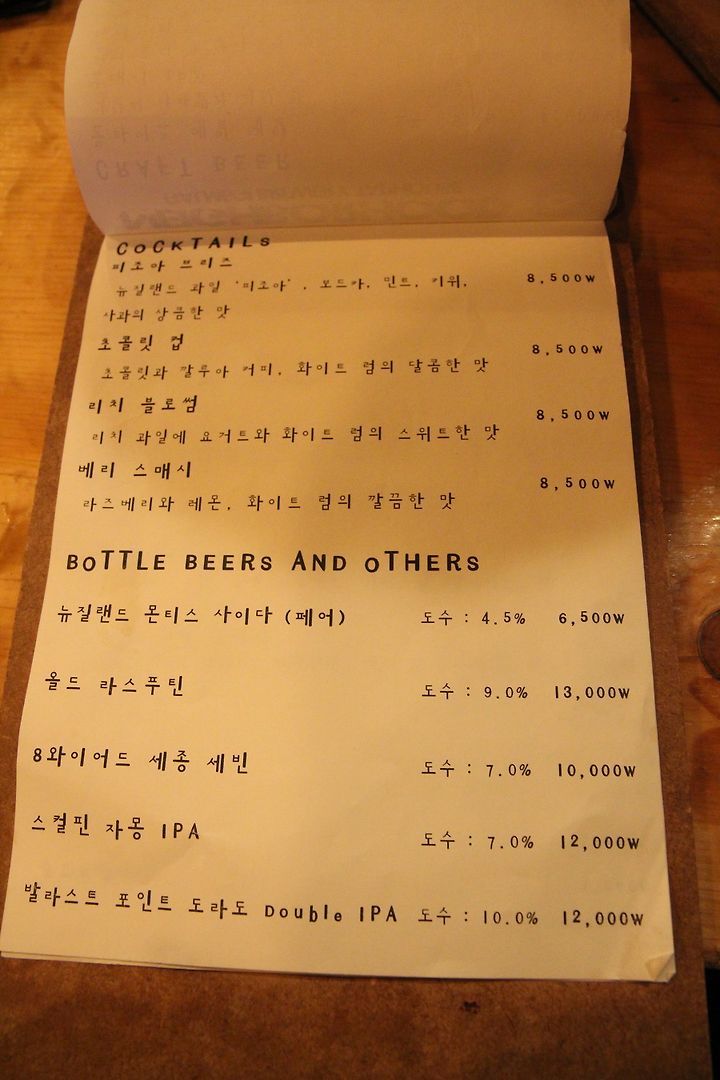 CRAFT BEER
COCKTAILS
피조아 브리즈
뉴질랜드 과일 '피조아', 보드카, 민트, 키위, 8,500W
사과의 상큼한 맛
초콜릿 컵 8,500W
초콜릿과 깔루아 커피, 화이트 럼의 달콤한 맛
리치 블로썸 8,500W
리치 과일에 요거트와 화이트 럼의 스위트한 맛
베리 스매시 8,500W
라즈베리와 레몬, 화이트 럼의 깔끔한 맛
BOTTLE BEERS AND OTHERS
뉴질랜드 몬티스 사이다 (페어) 도수 : 4.5% 6,500W
올드 라스푸틴 도수 : 9.0% 13,000W
8와이어드 세종 세빈 도수 : 7.0% 10,000W
스컬핀 자몽 IPA 도수 : 7.0% 12,000W
발라스트 포인트 도라도 Double IPA 도수 : 10.0% 12,000W